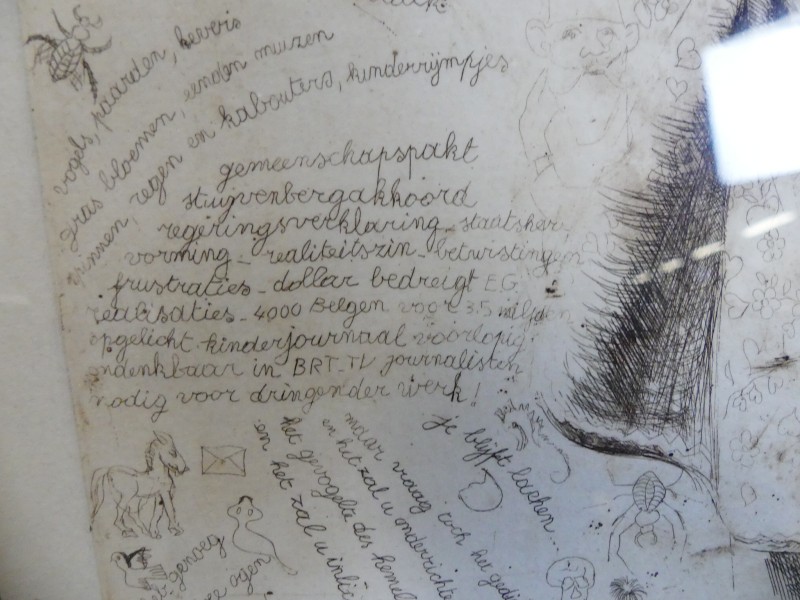 vogels, paarden, kevers
gras bloemen, eenden muizen
spinnen, regen en kabouters, kinderrijmpjes
gemeenschapspakt
stuyvenbergakkoord
regeringsverklaring - staatsher
vorming - realiteitszin - betwistingen
frustraties - dollar bedreigt E.G.
realisaties - 4000 Belgen voor 3.5 miljoen
opgelicht - kinderjournaal voorlopig
ondenkbaar in BRT-TV journalisten
nodig voor dringender werk!
je blijft lachen...
maar vraag toch het gedi
en het zal u onderrichte
het gevogelte des hemel
en het zal u inli
genoeg
ogen